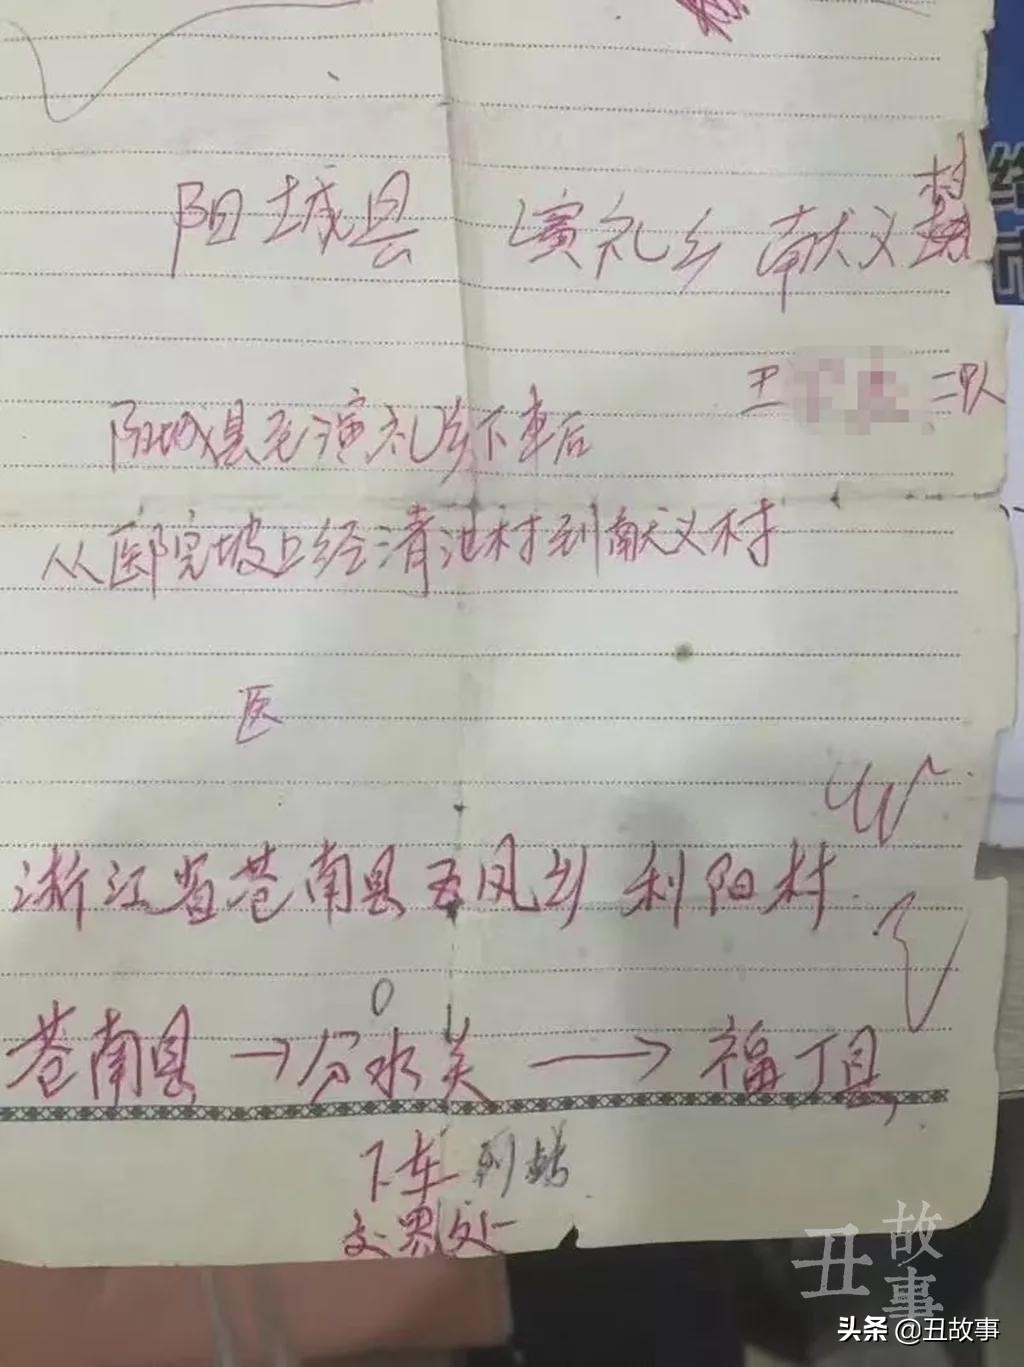 阳城县 演礼乡 献义村
王 二队
阳城县 演礼乡下车后
从医院坡上经清池村到献义村
医
浙江省苍南县五凤乡 利阳村
苍南县→分水关→福丁县
下车 到
交界处
故事
丑
头条 @丑故事